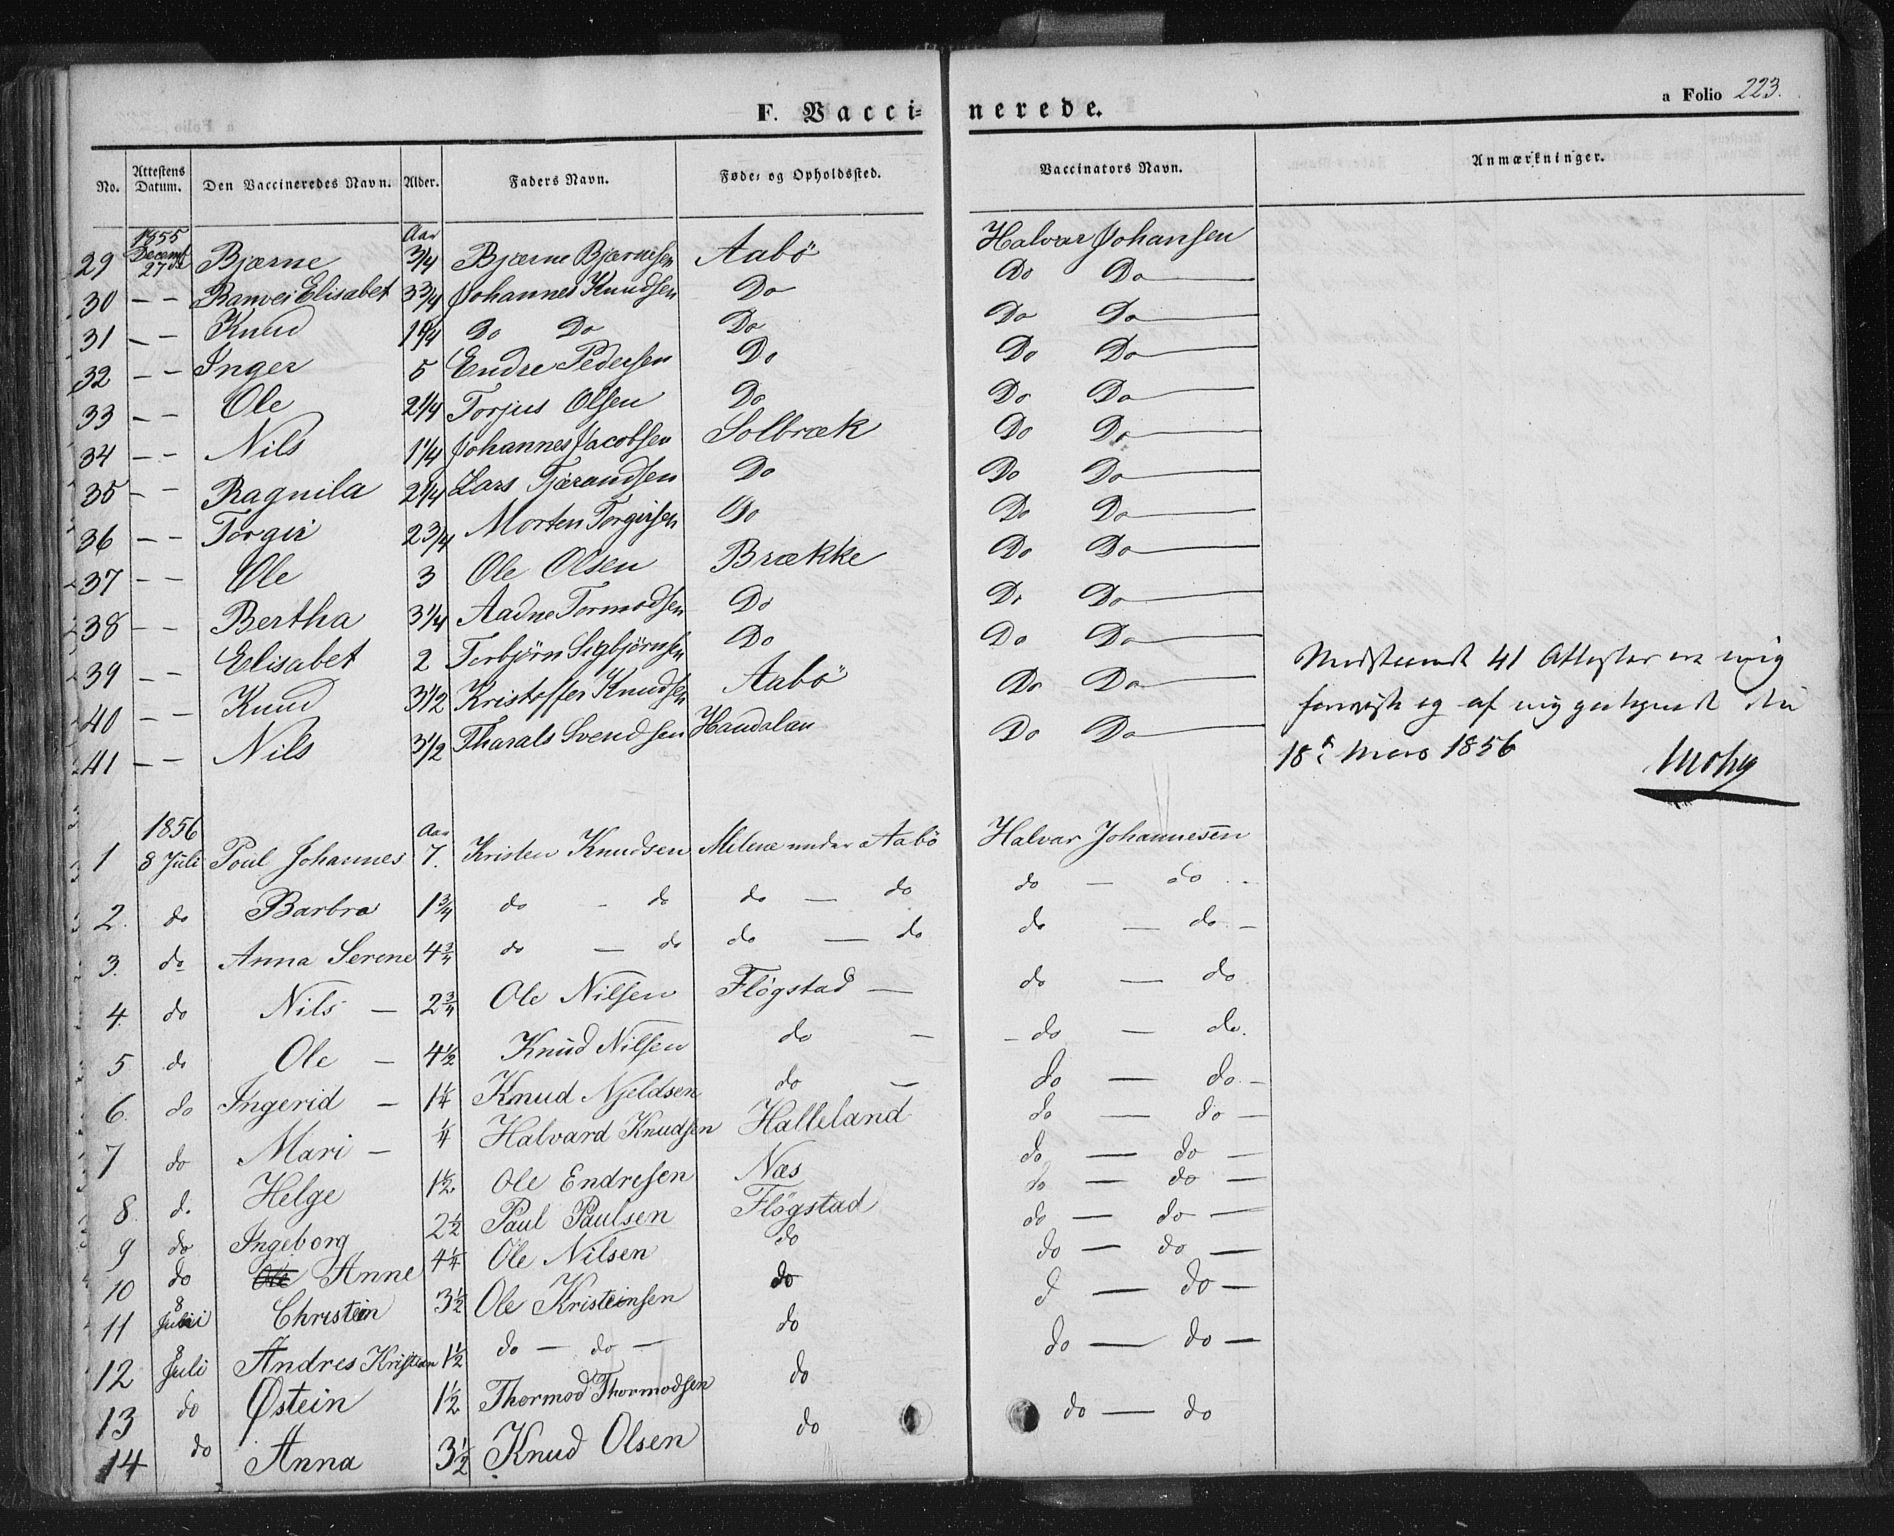 F. Vaccinerede. a Folio 223.
No. Attestens Datum. Den Vaccineredes Navn. Alder. Faders Navn. Føde- og Opholdssted. Vaccinators Navn. Anmærkninger.
29 1855 Decemb 27de Bjærne Aar 3/4 Bjærne Bjærnesen Aabö Halvar Johansen
30 – – Ranvei Elisabet 3 3/4 Johannes Knudsen Do Do Do
31 – – Knud 1 1/4 Do Do Do Do Do
32 – – Inger 5 Endre Pedersen Do Do Do
33 – – Ole 2 1/4 Torjus Olsen Do Do Do
34 – – Nils 1 1/4 Johannes Jacobsen Solbræk Do Do
35 – – Ragnila 2 1/4 Lars Tjærandsen Do Do Do
36 – – Torgir 2 3/4 Morten Torgirsen Do Do Do
37 – – Ole 3 Ole Olsen Brække Do Do
38 – – Bertha 3 1/4 Aadne Tormodsen Do Do Do
39 – – Elisabet 2 Torbjörn Sigbjörnsen Do Do Do
40 – – Knud 3 1/2 Kristoffer Knudsen Aabö Do Do
41 – – Nils 3 1/2 Tharals Svendsen Handalan Do Do
41 Attester
og af mig
18de Mars 1856
1 1856 8 Juli Poul Johannes Aar 7. Kristen Knudsen Milene under Aabö Halvar Johannesen
2. do Barbra 1 3/4 do – do do – do do – do
3. do Anna Serene 4 3/4 do – do do – do do – do –
4. do Nils – 2 3/4 Ole Nilsen Flögstad – do – do
5 do Ole – 4 1/2 Knud Nilsen do – do – do.
6. do Ingerid – 1 1/4 Knud Njeldsen do – do – do –
7 do Mari – 1/4 Halvard Knudsen Halleland do – do –
8 d. Helge 1 1/2 Ole Endresen Næs do – do –
9 do Ingeborg 2 1/2 Paul Paulsen Flögstad do – do –
10 do Ole Anne 4 1/4 Ole Nilsen do do – do –
11 8 Juli Christen 3 1/2 Ole Kristeinsen do d – do –
12 8 Juli Andres Kristian 1 1/2 do – do – do do – do –
13 do Østein 1 1/2 Thormod Thormodsen do do – do
14 do Anna 3 1/2 Knud Olsen do